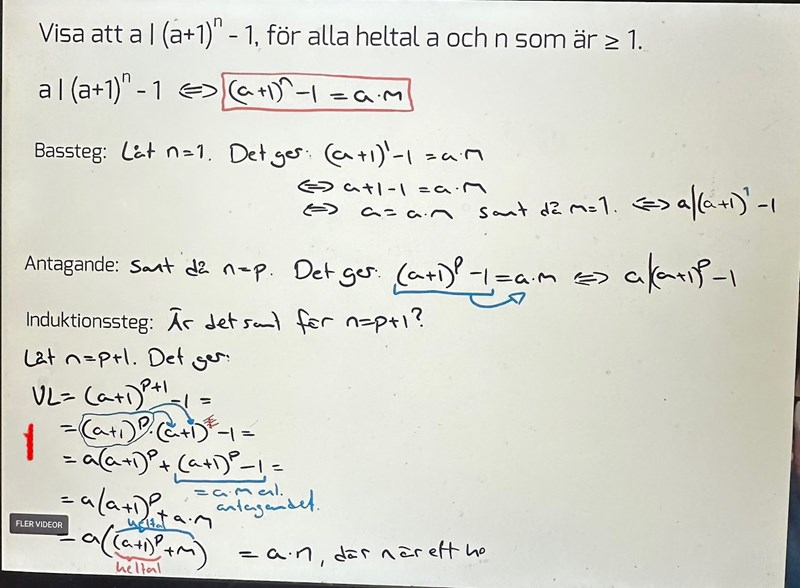 Visa att a | (a+1)^n - 1, för alla heltal a och n som är ≥ 1.
a | (a+1)^n - 1 ⇔ (a+1)^n - 1 = a·m
Bassteg: Låt n=1. Det ger: (a+1)^1 - 1 = a·m
⇔ a+1-1 = a·m
⇔ a = a·m sant då m=1. ⇔ a|(a+1)^1 - 1
Antagande: Sant då n=p. Det ger: (a+1)^p - 1 = a·m ⇔ a|(a+1)^p - 1
Induktionssteg: Är det sant för n=p+1?
Låt n=p+1. Det ger:
VL = (a+1)^p+1 - 1 =
= (a+1)^p·(a+1) - 1 =
= a(a+1)^p + (a+1)^p - 1 =
= a·m enl. antagandet.
= a(a+1)^p + a·m
heltal
FLER VIDEOR
= a((a+1)^p + m) = a·n, där n är ett he
heltal